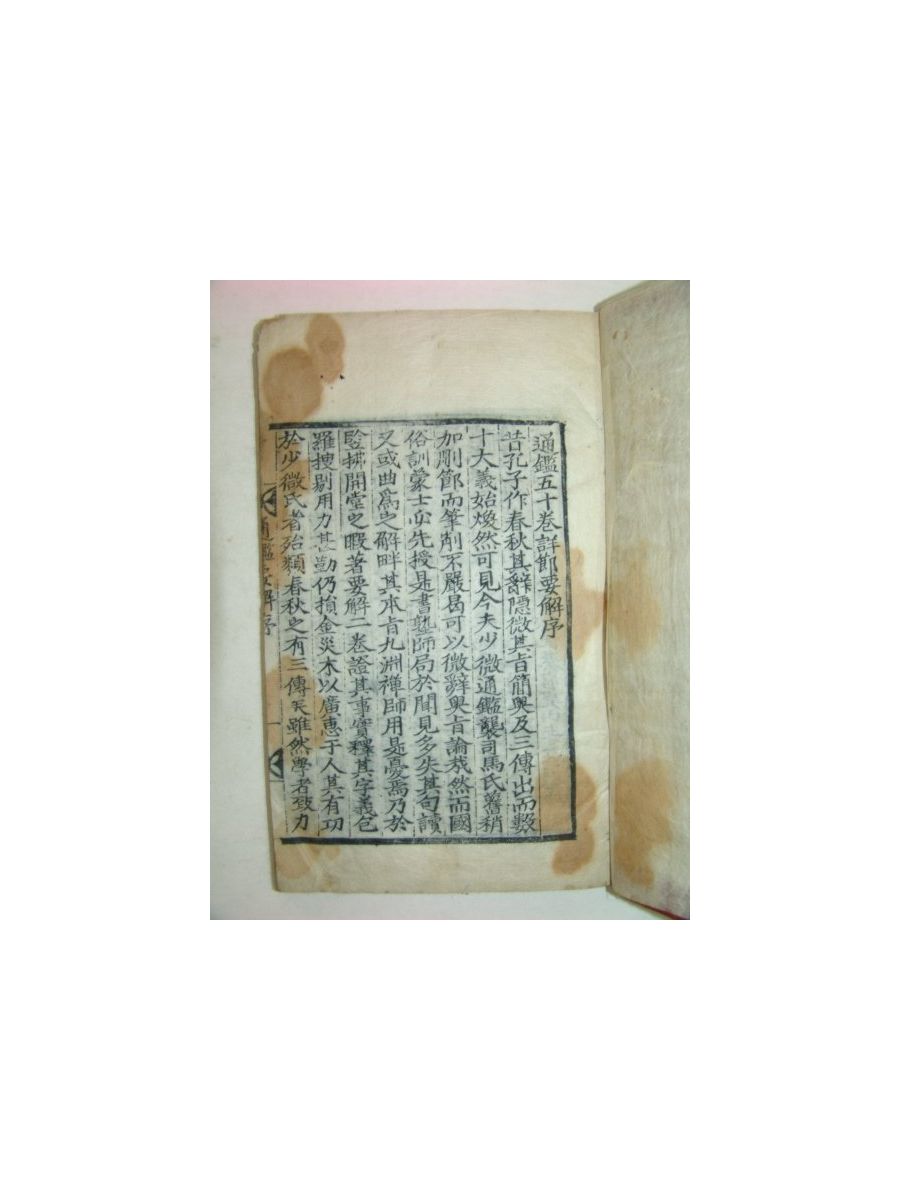 通鑑五十巻詳節要解序
昔孔子作春秋其辭隱微其旨簡奧及三傳出而數
十大義始煥然可見今夫少微通鑑襲司馬氏舊稍
加刪節而筆削不嚴曷可以微辭奧旨論哉然而國
俗訓蒙士必先授是書塾師局於聞見多失其句讀
又或曲爲之解畔其本旨九淵禪師用是憂焉乃於
竪拂開堂之暇著要解二巻證其事實釋其字義包
羅搜剔用力甚勤仍損金災木以廣惠于人其有功
於少微氏者殆類春秋之有三傳矣雖然學者致力
通鑑要解序 一